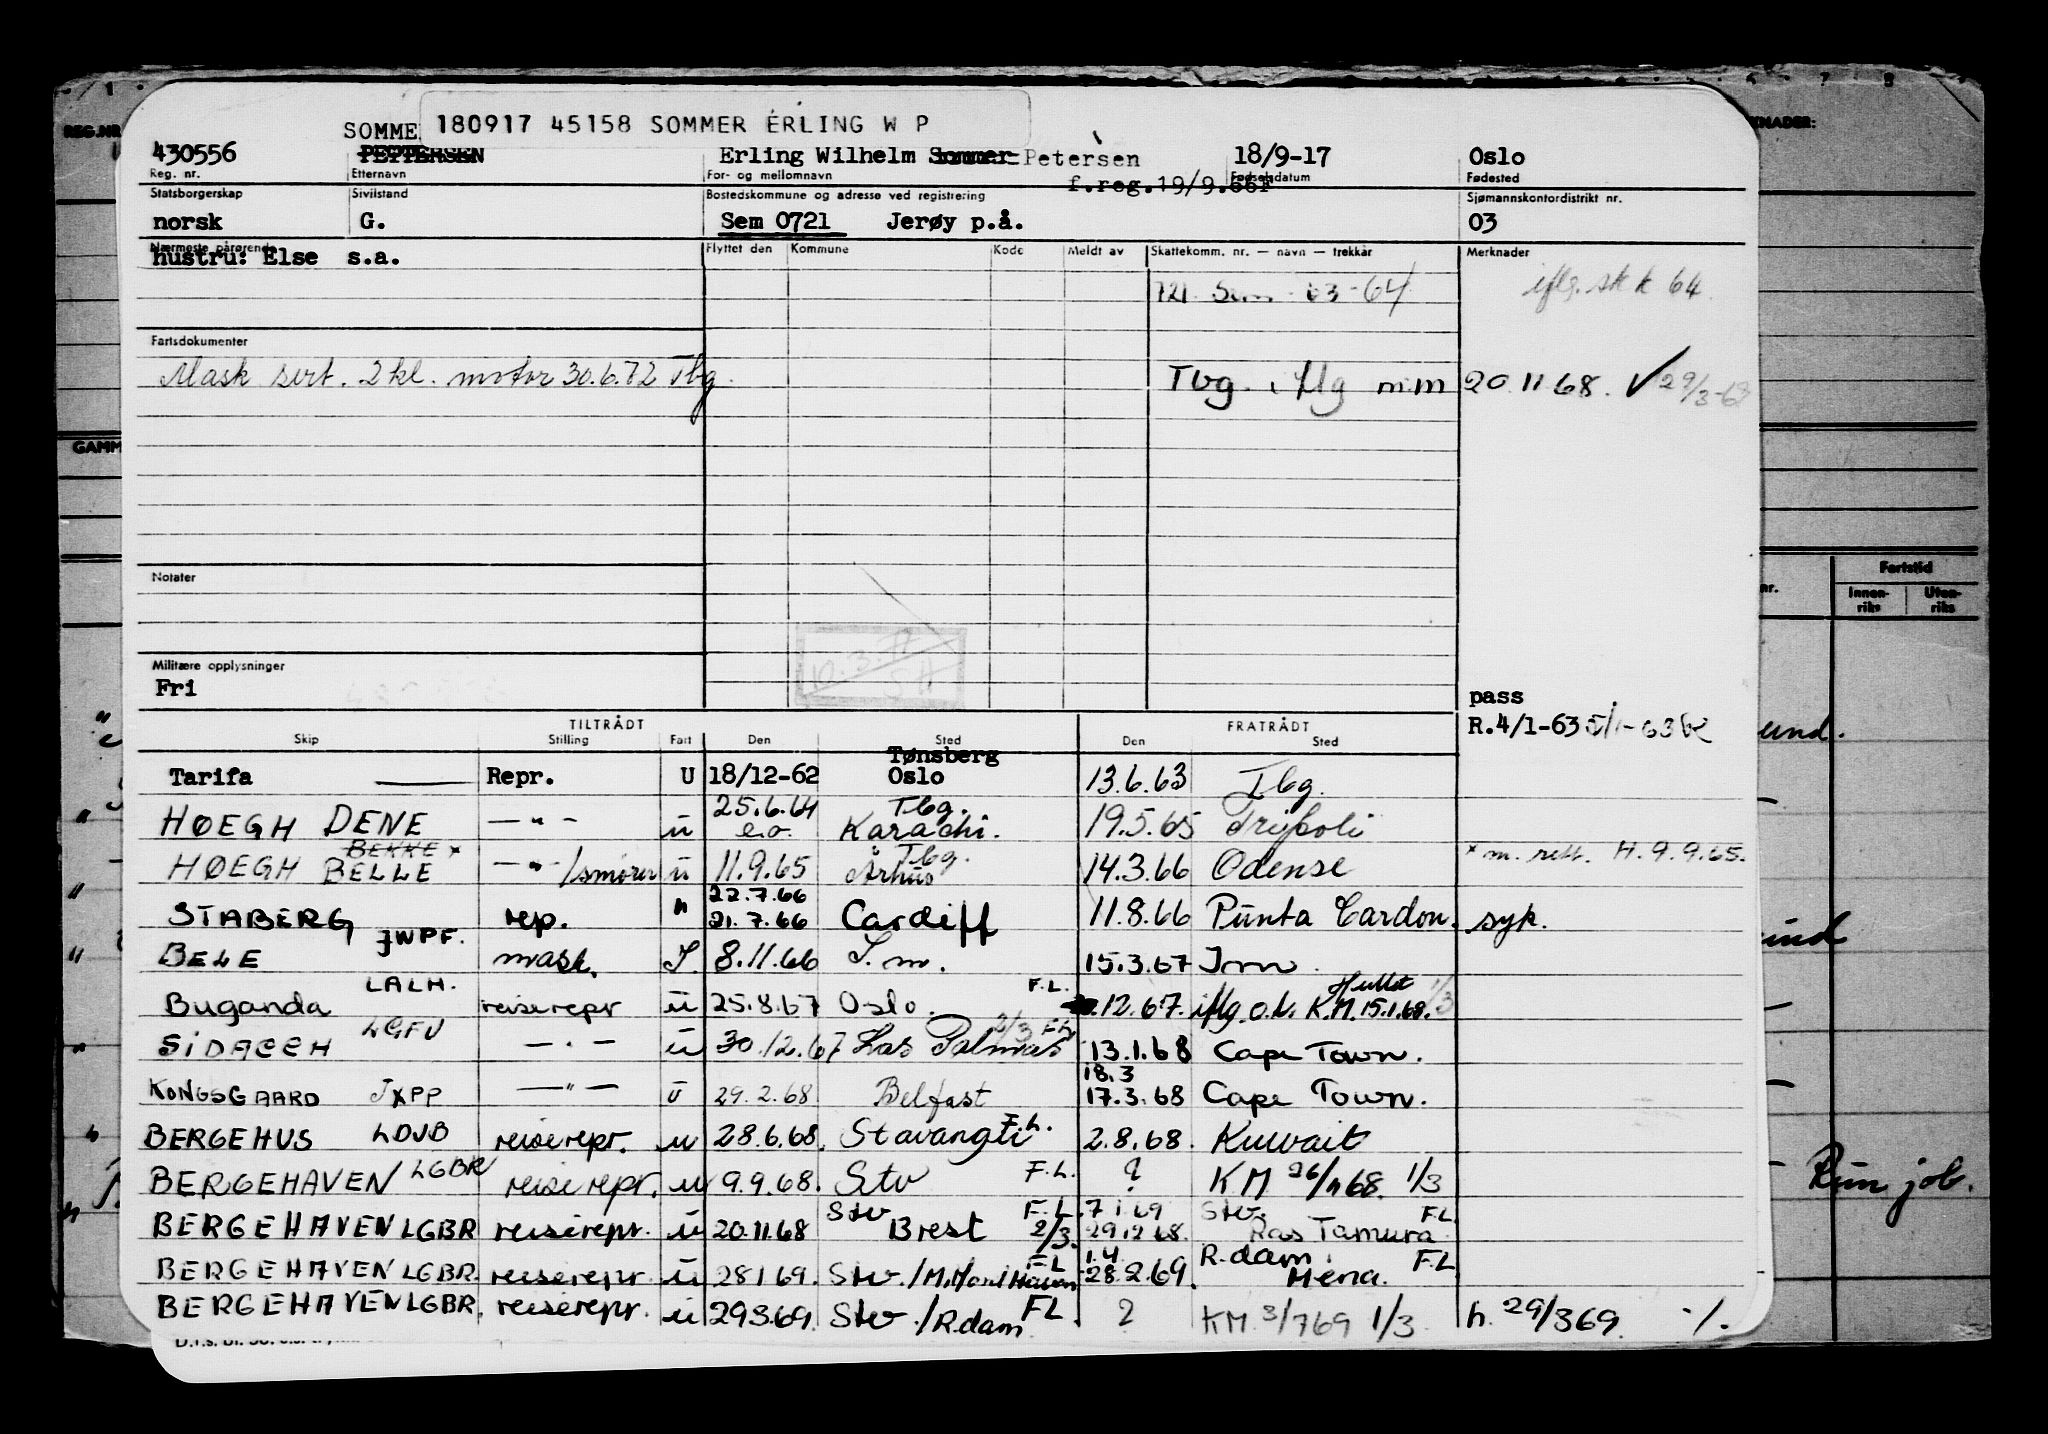 180917 45158 SOMMER ERLING W P
SOMME
430556 PETTERSEN Erling Wilhelm Sommer Petersen 18/9-17 Oslo
Reg. nr. Etternavn For- og mellomnavn Fødselsdatum Fødested
f.reg.19/9.66F
Statsborgerskap Sivilstand Bostedskommune og adresse ved registrering Sjømannskontordistrikt nr.
norsk G. Sem 0721 Jerøy p.å. 03
Nærmeste pårørende Flyttet den Kommune Kode Meldt av Skattekomm. nr. — navn — trekkår Merknader
hustru: Else s.a.
721 Sem 63-64 iflg. skk 64
Fartsdokumenter
Mask sert. 2 kl. motor 30.6.72 Tbg Tbg. iflg m.m 20 11 68. ✓ 29/3-63
GAMM
Notater
Fartstid
Innen-riks Uten-riks
Militære opplysninger
Fri
pass
R.4/1-63
TILTRÅDT FRATRÅDT
Skip Stilling Fart Den Sted Den Sted
Tarifa — Repr. U 18/12-62 Tønsberg Oslo 13.6.63 Tbg.
HØEGH DENE — " — u 25.6.64 e.o. Tbg. Karachi. 19.5.65 Tripoli
HØEGH BEKKE x BELLE — " — /smører u 11.9.65 Tbg. Århus 14.3.66 Odense x m. rett. H. 9.9.65.
STABERG rep. " 22.7.66 21.7.66 Cardiff 11.8.66 Punta Cardon. syk.
BELE JWPF. mask. I. 8.11.66 I. m. 15.3.67 Inn.
Buganda LALH. reiserepr u 25.8.67 Oslo. F.L. .12.67. iflg. o.k. Hullet K.M. 15.1.68. 1/3
SIDACEH LGFU — " — u 30.12.67 Las Palmas 2/3 FL 13.1.68 Cape Town.
KONGSGAARD JXPP — " — u 29.2.68 Belfast 18.3 17.3.68 Cape Town.
BERGEHUS LDJB reiserepr. u 28.6.68. Stavanger F.L. 2.8.68. Kuwait
BERGEHAVEN LGBR reiserepr. u 9.9.68. Stv F.L. ? KM 26/11 68. 1/3 Run job.
BERGEHAVEN LGBR reiserepr. u 20.11.68 Stv Brest F.L. 2/3. 7 1 69 29.12.68. Stv. Ras Tamura FL.
BERGEHAVEN LGBR. reiserepr u 28 1 69. Stv./M. FL 1.4 28.2.69. R.dam Mena. F.L
BERGEHAVEN LGBR. reiserepr. u 29 3 69. Stv./R.dam FL. ? KM. 3/7 69 1/3 h. 29/3 69. ./.